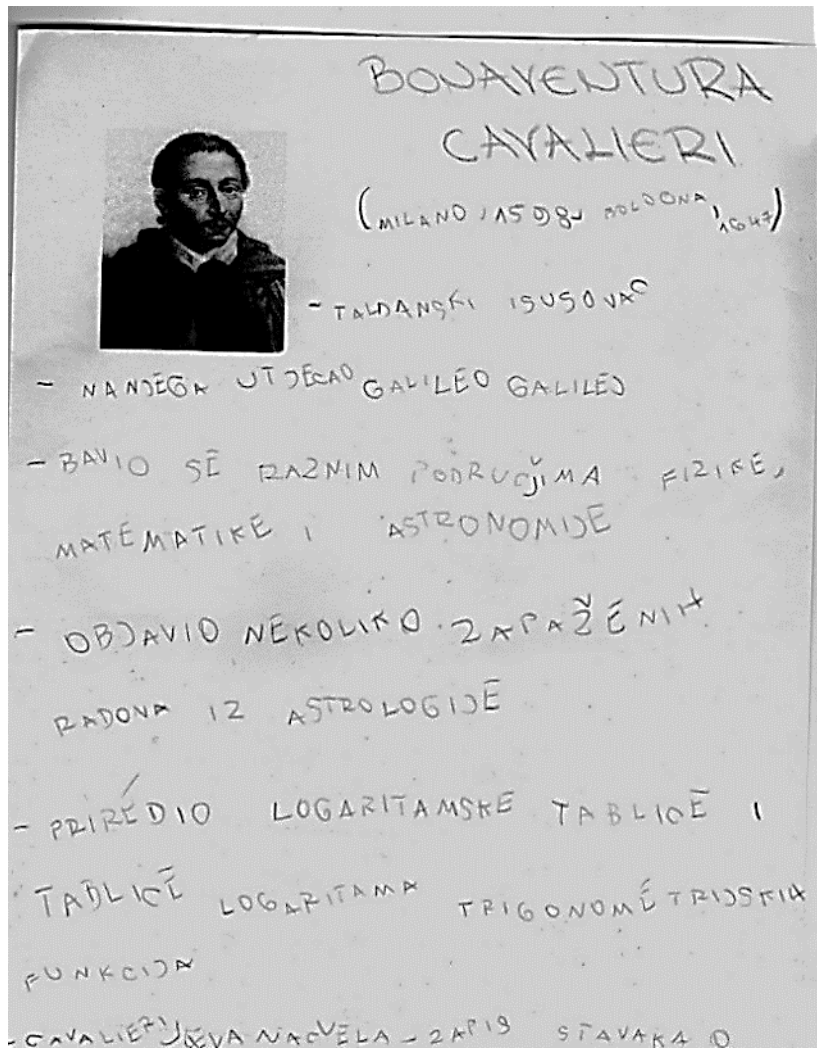 BONAVENTURA
CAVALIERI
(MILANO, 1598- BOLDONA, 1647)
- TALDANSKI ISUSOVAC
- NANJEGA UTJECAO GALILEO GALILEJ
- BAVIO SE RAZNIM PODRUČJIMA FIZIKE,
MATEMATIKE I ASTRONOMIJE
- OBJAVIO NEKOLIKO ZAPAŽENIH
RADOVA IZ ASTROLOGIJE
- PRIREDIO LOGARITAMSKE TABLICE I
TABLICE LOGARITAMA TRIGONOMETRIJSKIH
FUNKCIJA
- CAVALIERIJEVA NAČELA - ZAPIS STAVAKA O